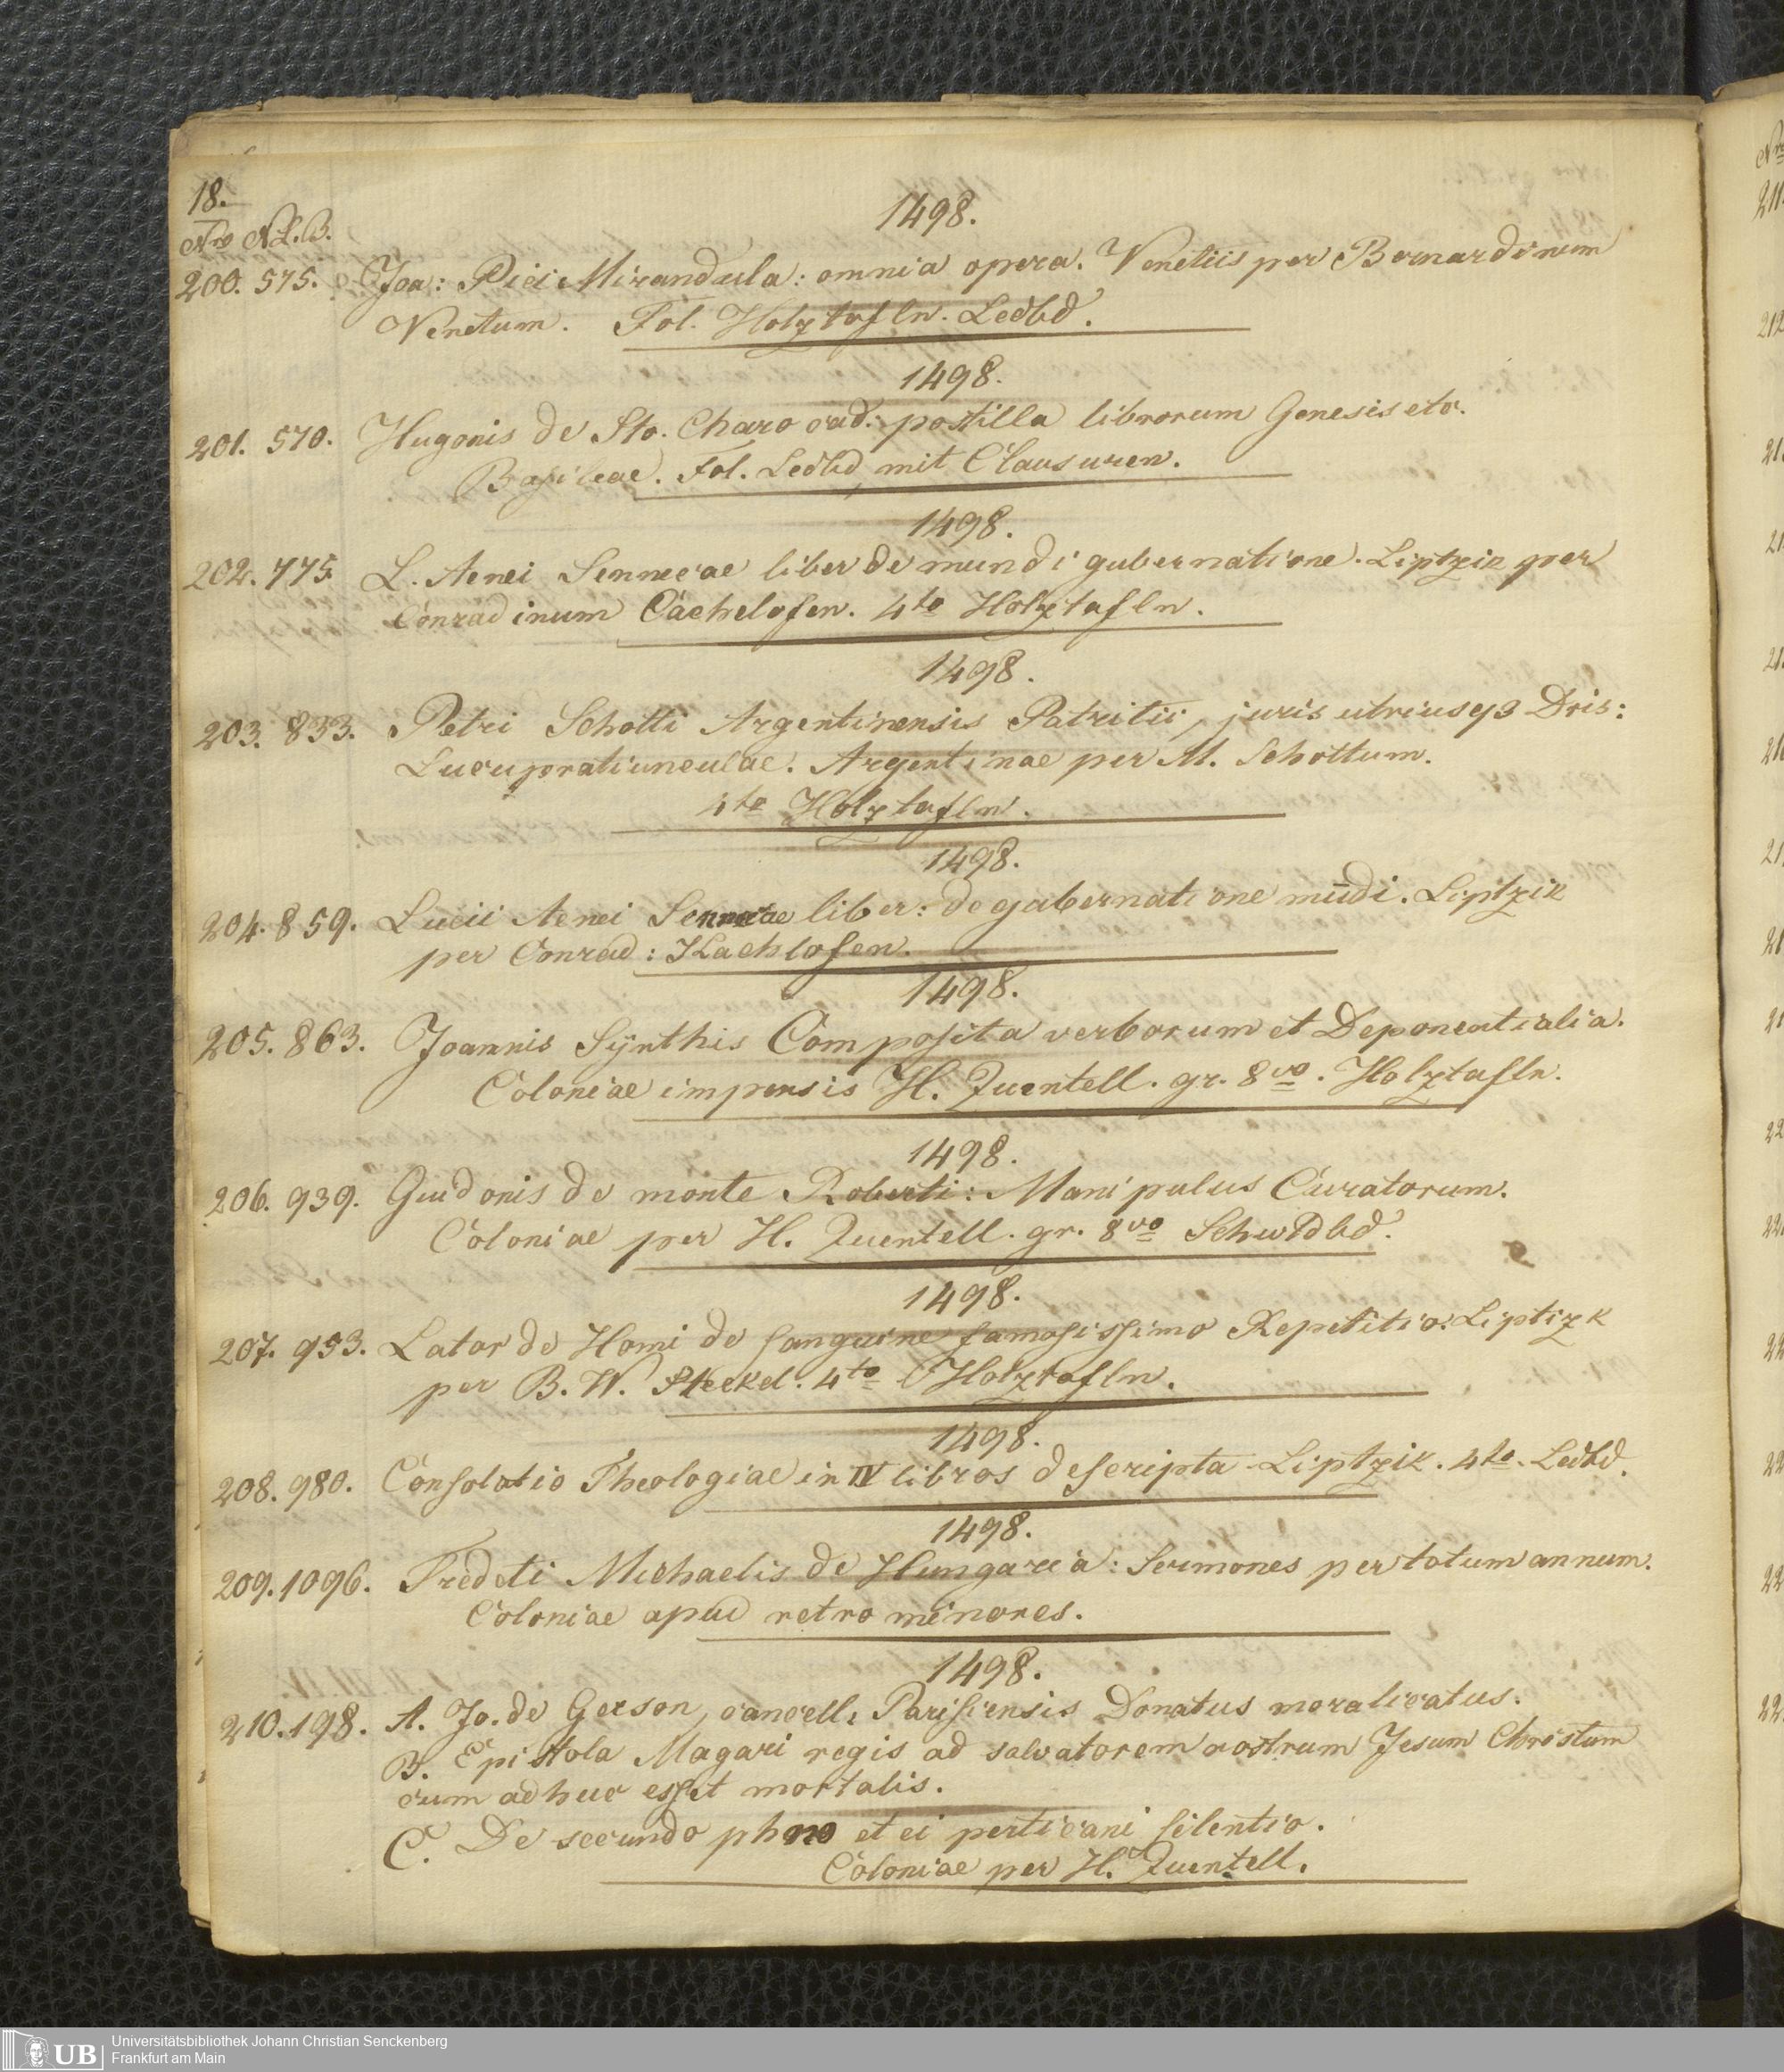 18.
Nro N.L.B.
1498.
200. 575. Joa: Pici Mirandula: omnia opera. Venetiis per Bernardinum
Venetum. Fol. Holztafln. Ledbd.
1498.
201. 570. Hugonis de Sto. Charo cad. postilla librorum Genesis etc.
Basileae. Fol. Ledbd, mit Clausuren.
1498.
202. 775. L. Aenei Sennecae liber de mundi gubernatione. Liptzik per
Conradinum Cachelofen. 4to Holztafln.
1498.
203. 833. Petri Schotti Argentinensis Patritii, juris utriusq3 Dris:
Lucupratiunculae. Argentinae per M. Schottum.
4to Holztafln.
1498.
204. 859. Lucii Aenei Sennecae liber: de gubernatione mūdi. Liptzik
per Conrad: Kachlofen.
1498.
205. 863. Joannis Sÿnthis Composita verborum et Deponentialia.
Coloniae impensis H. Quentell. gr. 8vo. Holztafln.
1498.
206. 939. Guidonis de monte Roberti: Manipulus Curatorum.
Coloniae per H. Quentell. gr. 8vo Schwldbd.
1498.
207. 953. Lator de Homi de sanguine famosissimo Repetitio. Liptizk
per B. W. Steckel. 4to Holztafln.
1498.
208. 980. Consolatio Theologiae in IV libros descripta Liptzik. 4to. Ledbd.
1498.
209. 1096. Michaelis de Hungaria: Sermones per totum annum.
Coloniae apud retro minores.
1498.
210. 198. A. Jo. de Gerson, cancell. Parisiensis Donatus moralicatus.
B. Epistola Magari regis ad salvatorem nostrum Jesum Christum
cum adhuc esset mortalis.
C. De secundo phno et ei perticani silentio.
Coloniae per H. Quentell.
UB Universitätsbibliothek Johann Christian Senckenberg
Frankfurt am Main